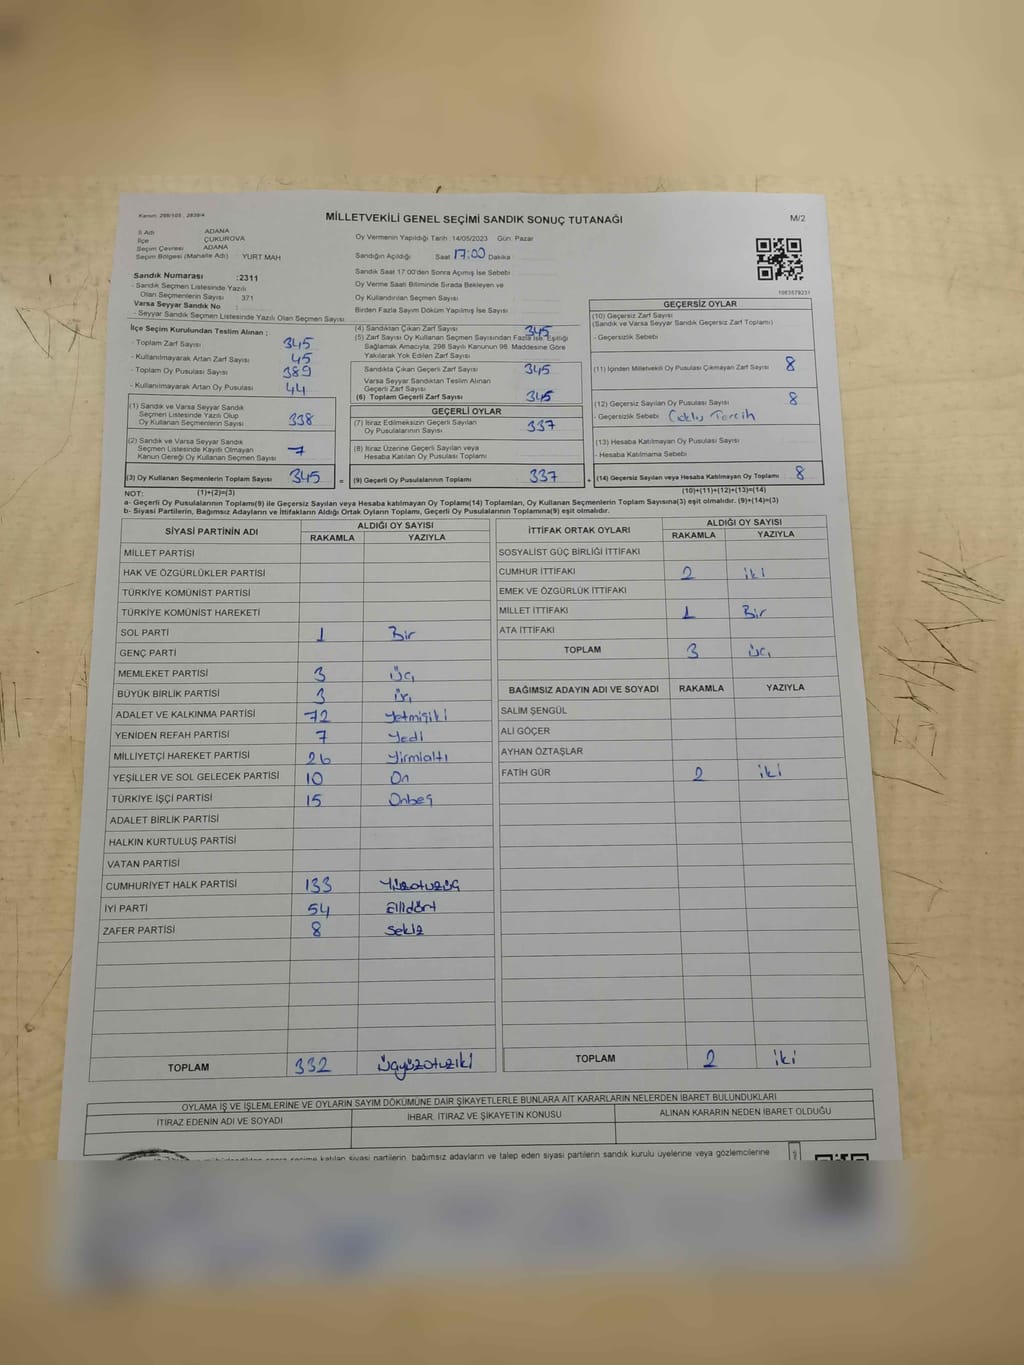 Kanun: 298/105 , 2839/4
MİLLETVEKİLİ GENEL SEÇİMİ SANDIK SONUÇ TUTANAĞI
M/2
İl Adı ADANA
İlçe ÇUKUROVA
Seçim Çevresi ADANA
Seçim Bölgesi (Mahalle Adı) YURT MAH
Oy Vermenin Yapıldığı Tarih :14/05/2023 Gün: Pazar
Sandığın Açıldığı Saat 17:00 Dakika :
Sandık Saat 17:00'den Sonra Açımış İse Sebebi
Oy Verme Saati Bitiminde Sırada Bekleyen ve
Oy Kullandırılan Seçmen Sayısı
Birden Fazla Sayım Döküm Yapılmış İse Sayısı
Sandık Numarası :2311
- Sandık Seçmen Listesinde Yazılı
Olan Seçmenlerin Sayısı 371
Varsa Seyyar Sandık No :
- Seyyar Sandık Seçmen Listesinde Yazılı Olan Seçmen Sayısı:
İlçe Seçim Kurulundan Teslim Alınan ;
- Toplam Zarf Sayısı 345
- Kullanılmayarak Artan Zarf Sayısı 45
- Toplam Oy Pusulası 389
- Kullanılmayarak Artan Oy Pusulası 44
(1) Sandık ve Varsa Seyyar Sandık
Seçmen Listesinde Yazılı Olup
Oy Kullanan Seçmenlerin Sayısı 338
(2) Sandık ve Varsa Seyyar Sandık
Seçmen Listesinde Kayıtlı Olmayan
Kanun Gereği Oy Kullanan Seçmen Sayısı 7
(3) Oy Kullanan Seçmenlerin Toplam Sayısı 345
(1)+(2)=(3)
(4) Sandıktan Çıkan Zarf Sayısı 345
(5) Zarf Sayısı Oy Kullanan Seçmen Sayısından Fazla İse, Eşitliği
Sağlamak Amacıyla, 298 Sayılı Kanunun 98. Maddesine Göre
Yakılarak Yok Edilen Zarf Sayısı
Sandıkta Çıkan Geçerli Zarf Sayısı 345
Varsa Seyyar Sandıktan Teslim Alınan
Geçerli Zarf Sayısı
(6) Toplam Geçerli Zarf Sayısı 345
GEÇERLİ OYLAR
(7) İtiraz Edilmeksizin Geçerli Sayılan
Oy Pusulalarının Sayısı 337
(8) İtiraz Üzerine Geçerli Sayılan veya
Hesaba Katılan Oy Pusulası Toplamı
= (9) Geçerli Oy Pusulalarının Toplamı 337
1063579231
GEÇERSİZ OYLAR
(10) Geçersiz Zarf Sayısı
(Sandık ve Varsa Seyyar Sandık Geçersiz Zarf Toplamı)
- Geçersizlik Sebebi
(11) İçinden Milletvekili Oy Pusulası Çıkmayan Zarf Sayısı 8
(12) Geçersiz Sayılan Oy Pusulası Sayısı 8
- Geçersizlik Sebebi Çoklu Tercih
(13) Hesaba Katılmayan Oy Pusulası Sayısı
- Hesaba Katılmama Sebebi
+ (14) Geçersiz Sayılan veya Hesaba Katılmayan Oy Toplamı 8
(10)+(11)+(12)+(13)=(14)
NOT:
a- Geçerli Oy Pusulalarının Toplamı(9) ile Geçersiz Sayılan veya Hesaba katılmayan Oy Toplamı(14) Toplamları, Oy Kullanan Seçmenlerin Toplam Sayısına(3) eşit olmalıdır. (9)+(14)=(3)
b- Siyasi Partilerin, Bağımsız Adayların ve İttifakların Aldığı Ortak Oyların Toplamı, Geçerli Oy Pusulalarının Toplamına(9) eşit olmalıdır.
SİYASİ PARTİNİN ADI ALDIĞI OY SAYISI
RAKAMLA YAZIYLA
MİLLET PARTİSİ
HAK VE ÖZGÜRLÜKLER PARTİSİ
TÜRKİYE KOMÜNİST PARTİSİ
TÜRKİYE KOMÜNİST HAREKETİ
SOL PARTİ 1 Bir
GENÇ PARTİ
MEMLEKET PARTİSİ 3 Üç
BÜYÜK BİRLİK PARTİSİ 3 üç
ADALET VE KALKINMA PARTİSİ 72 Yetmişiki
YENİDEN REFAH PARTİSİ 7 Yedi
MİLLİYETÇİ HAREKET PARTİSİ 26 Yirmialtı
YEŞİLLER VE SOL GELECEK PARTİSİ 10 On
TÜRKİYE İŞÇİ PARTİSİ 15 Onbeş
ADALET BİRLİK PARTİSİ
HALKIN KURTULUŞ PARTİSİ
VATAN PARTİSİ
CUMHURİYET HALK PARTİSİ 133 Yüzotuzüç
İYİ PARTİ 54 Ellidört
ZAFER PARTİSİ 8 sekiz
TOPLAM 332 Üçyüzotuziki
İTTİFAK ORTAK OYLARI ALDIĞI OY SAYISI
RAKAMLA YAZIYLA
SOSYALİST GÜÇ BİRLİĞİ İTTİFAKI
CUMHUR İTTİFAKI 2 iki
EMEK VE ÖZGÜRLÜK İTTİFAKI
MİLLET İTTİFAKI 1 Bir
ATA İTTİFAKI
TOPLAM 3 üç
BAĞIMSIZ ADAYIN ADI VE SOYADI RAKAMLA YAZIYLA
SALİM ŞENGÜL
ALİ GÖÇER
AYHAN ÖZTAŞLAR
FATİH GÜR 2 iki
TOPLAM 2 iki
OYLAMA İŞ VE İŞLEMLERİNE VE OYLARIN SAYIM DÖKÜMÜNE DAİR ŞİKAYETLERLE BUNLARA AİT KARARLARIN NELERDEN İBARET BULUNDUKLARI
İTİRAZ EDENİN ADI VE SOYADI İHBAR, İTİRAZ VE ŞİKAYETİN KONUSU ALINAN KARARIN NEDEN İBARET OLDUĞU
sonra seçime katılan siyasi partilerin, bağımsız adayların ve talep eden siyasi partilerin sandık kurulu üyelerine veya gözlemcilerine